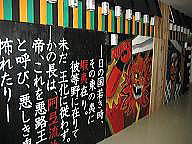 ―日の国若き時、
その東の夷に
蝦夷在りて
彼等野に在りて
未だ 王化に従わず。
かの長は、阿弖流為
帝、これを悪路王
と呼び、悪しき鬼
怖れたり―